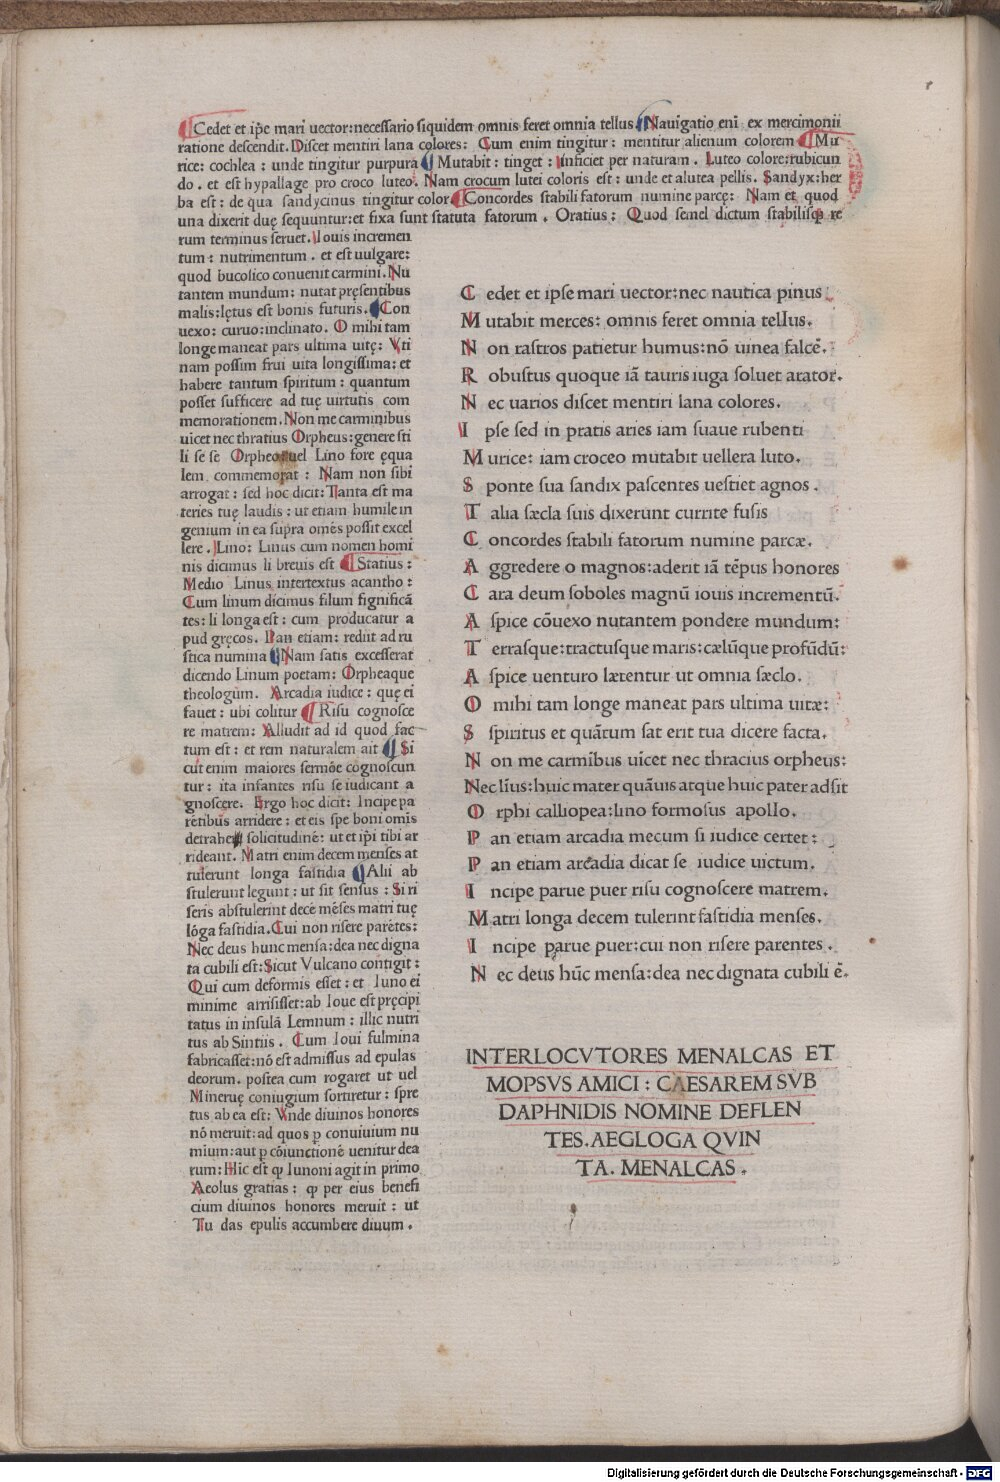 Cedet et ip̃e mari uector:necessario siquidem omnis feret omnia tellus Nauigatio eni ex mercimonii
ratione descendit. Discet mentiri lana colores: Cum enim tingitur: mentitur alienum colorem Mu
rice: cochlea: unde tingitur purpura Mutabit: tinget: inficiet per naturam. Luteo colore:rubicun
do. et est hypallage pro croco luteo. Nam crocum lutei coloris est: unde et alutea pellis. Sandyx:her
ba est: de qua sandycinus tingitur color Concordes stabili fatorum numine parcę: Nam et quod
una dixerit duę sequuntur:et fixa sunt statuta fatorum. Oratius: Quod semel dictum stabilisꝙ re
rum terminus seruet. Iouis incremen
tum: nutrimentum. et est uulgare:
quod bucolico conuenit carmini. Nu
tantem mundum: nutat pręsentibus
malis:lętus est bonis futuris. Con
uexo: curuo:inclinato. O mihi tam
longe maneat pars ultima uitę: Vti
nam possim frui uita longissima: et
habere tantum spiritum: quantum
posset sufficere ad tuę uirtutis com
memorationem. Non me carminibus
uicet nec thratius Orpheus:genere sti
li se se Orpheo uel Lino fore ęqua
lem commemorat: Nam non sibi
arrogat: sed hoc dicit: Tanta est ma
teries tuę laudis: ut etiam humile in
genium in ea supra om̃es possit excel
lere. Lino: Linus cum nomen homi
nis dicimus li breuis est Statius:
Medio Linus intertextus acantho:
Cum linum dicimus filum significā
tes: li longa est: cum producatur a
pud gręcos. Pan etiam: rediit ad ru
stica numina Nam satis excesserat
dicendo Linum poetam: Orpheaque
theologum. Arcadia iudice: quę ei
fauet: ubi colitur Risu cognosce
re matrem: Alludit ad id quod fac
tum est: et rem naturalem ait Si
cut enim maiores sermōe cognoscun
tur: ita infantes risu se iudicant a
gnoscere. Ergo hoc dicit: Incipe pa
rētibus arridere: et eis spe boni omis
detrahe solicitudinē: ut et ip̃i tibi ar
rideant. Matri enim decem menses at
tulerunt longa fastidia Alii ab
stulerunt legunt: ut sit sensus: Si ri
seris abstulerint decē mēses matri tuę
lōga fastidia. Cui non risere parētes:
Nec deus hunc mensa:dea nec digna
ta cubili est:Sicut Vulcano contigit:
Qui cum deformis esset: et Iuno ei
minime arrisisset:ab Ioue est pręcipi
tatus in insulā Lemnum: illic nutri
tus ab Sintiis. Cum Ioui fulmina
fabricasset:nō est admissus ad epulas
deorum. postea cum rogaret ut uel
Mineruę coniugium sortiretur: spre
tus ab ea est: Vnde diuinos honores
nō meruit: ad quos p conuiuium nu
mium:aut p cōiunctionē uenitur dea
rum: Hic est ꝙ Iunoni agit in primo
Aeolus gratias: ꝙ per eius benefi
cium diuinos honores meruit: ut
Tu das epulis accumbere diuum.
C edet et ipse mari uector:nec nautica pinus
M utabit merces: omnis feret omnia tellus.
N on rastros patietur humus:nō uinea falcē.
R obustus quoque iā tauris iuga soluet arator.
N ec uarios discet mentiri lana colores.
I pse sed in pratis aries iam suaue rubenti
M urice: iam croceo mutabit uellera luto.
S ponte sua sandix pascentes uestiet agnos.
T alia sæcla suis dixerunt currite fusis
C oncordes stabili fatorum numine parcæ.
A ggredere o magnos:aderit iā tēpus honores
C ara deum soboles magnū iouis incrementū.
A spice cōuexo nutantem pondere mundum:
T errasque:tractusque maris:cælūque profūdū:
A spice uenturo lætentur ut omnia sæclo.
O mihi tam longe maneat pars ultima uitæ:
S spiritus et quātum sat erit tua dicere facta.
N on me carmībus uicet nec thracius orpheus:
Nec līus:huic mater quāuis atque huic pater adsit
O rphi calliopea:lino formosus apollo.
P an etiam arcadia mecum si iudice certet:
P an etiam arcadia dicat se iudice uictum.
I ncipe parue puer risu cognoscere matrem.
M atri longa decem tulerint fastidia menses.
I ncipe parue puer:cui non risere parentes.
N ec deus hūc mensa:dea nec dignata cubili ē.
INTERLOCVTORES MENALCAS ET
MOPSVS AMICI: CAESAREM SVB
DAPHNIDIS NOMINE DEFLEN
TES. AEGLOGA QVIN
TA. MENALCAS.
Digitalisierung gefördert durch die Deutsche Forschungsgemeinschaft - DFG